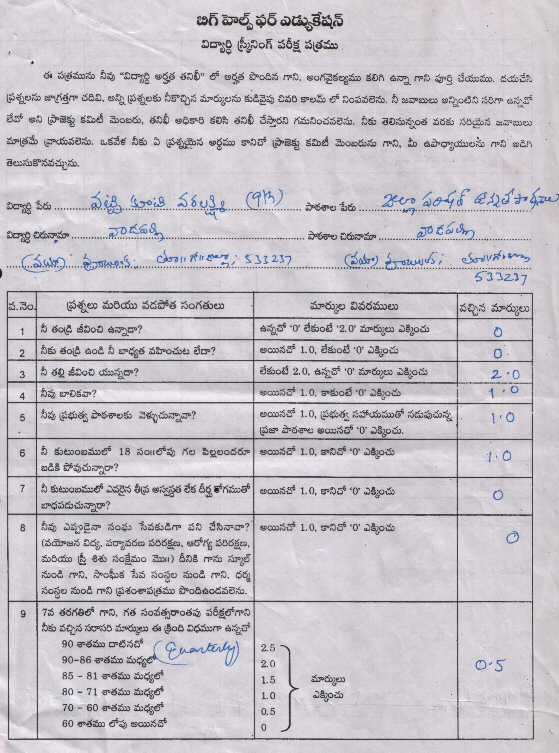 బిగ్ హెల్ప్ ఫర్ ఎడ్యుకేషన్
విద్యార్థి స్క్రీనింగ్ పరీక్ష పత్రము
ఈ పత్రమును నీవు "విద్యార్థి అర్హత తనిఖీ" లో అర్హత పొందిన గాని, అంగవైకల్యము కలిగి ఉన్నా గాని పూర్తి చేయుము. దయచేసి
ప్రశ్నలను జాగ్రత్తగా చదివి, అన్ని ప్రశ్నలకు నీకొచ్చిన మార్కులను కుడివైపు చివరి కాలమ్ లో నింపవలెను. నీ జవాబులు అన్నింటిని సరిగా ఉన్నవో
లేవో అని ప్రాజెక్టు కమిటీ మెంబరు, తనిఖీ అధికారి కలిసి తనిఖీ చేస్తారని గమనించవలెను. నీకు తెలిసినంత వరకు సరియైన జవాబులు
మాత్రమే వ్రాయవలెను. ఒకవేళ నీకు ఏ ప్రశ్నయైన అర్థము కానిచో ప్రాజెక్టు కమిటీ మెంబరును గాని, మీ ఉపాధ్యాయులను గాని అడిగి
తెలుసుకొనవచ్చును.
విద్యార్థి పేరు వరలక్ష్మి (9th) పాఠశాల పేరు జిల్లా పరిషత్
విద్యార్థి చిరునామా వాడపల్లి పాఠశాల చిరునామా వాడపల్లి
533237
533237
వ.నెం. ప్రశ్నలు మరియు వడపోత సంగతులు మార్కుల వివరములు వచ్చిన మార్కులు
1 నీ తండ్రి జీవించి ఉన్నాడా? ఉన్నచో '0' లేకుంటే '2.0' మార్కులు ఎక్కించు 0
2 నీకు తండ్రి ఉండి నీ బాధ్యత వహించుట లేదా? అయినచో 1.0, లేకుంటే '0' ఎక్కించు 0
3 నీ తల్లి జీవించి యున్నదా? లేకుంటే 2.0, ఉన్నచో '0' మార్కులు ఎక్కించు 2.0
4 నీవు బాలికవా? అయినచో 1.0, కాకుంటే '0' ఎక్కించు 1.0
5 నీవు ప్రభుత్వ పాఠశాలకు వెళ్ళుచున్నావా? అయినచో 1.0, ప్రభుత్వ సహాయముతో నడుపుచున్న 1.0
ప్రజా పాఠశాల అయినచో '0' ఎక్కించు.
6 నీ కుటుంబములో 18 సం॥లోపు గల పిల్లలందరూ అయినచో 1.0, కానిచో '0' ఎక్కించు 1.0
బడికి పోవుచున్నారా?
7 నీ కుటుంబములో ఎవరైన తీవ్ర అస్వస్థత లేక దీర్ఘ రోగముతో అయినచో 1.0, కానిచో '0' ఎక్కించు 0
బాధపడుచున్నారా?
8 నీవు ఎప్పుడైనా సంఘ సేవకుడిగా పని చేసినావా? అయినచో 1.0, కానిచో '0' ఎక్కించు 0
(వయోజన విద్య, పర్యావరణ పరిరక్షణ, ఆరోగ్య పరిరక్షణ,
మరియు స్త్రీ శిశు సంక్షేమం మొ॥) దీనికి గాను స్కూల్
నుండి గాని, సాంఘిక సేవ సంస్థల నుండి గాని, ధర్మ
సంస్థల నుండి గాని ప్రశంశాపత్రము పొందిఉండవలెను.
9 7వ తరగతిలో గాని, గత సంవత్సరాంతపు పరీక్షలోగాని
నీకు వచ్చిన సరాసరి మార్కులు ఈ క్రింది విధముగా ఉన్నచో
90 శాతము దాటినచో (Quarterly) 2.5
90-86 శాతము మధ్యలో 2.0
85 - 81 శాతము మధ్యలో 1.5 మార్కులు 0.5
80 - 71 శాతము మధ్యలో 1.0 ఎక్కించు
70 - 60 శాతము మధ్యలో 0.5
60 శాతము లోపు అయినచో 0